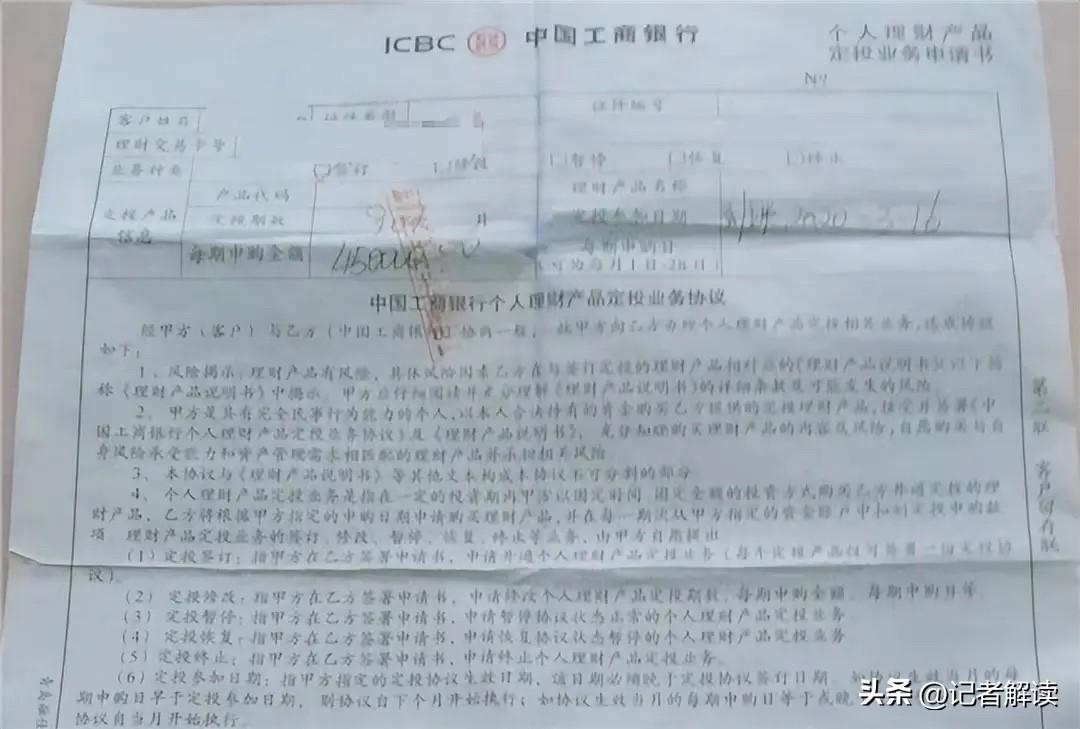 ICBC 中国工商银行
个人理财产品
定投业务申请书
No
客户姓名 证件类型 证件编号
理财交易卡号
业务种类 签订 修改 暂停 恢复 终止
定投产品信息
产品代码 理财产品名称
定投期数 月 定投参加日期 2020 3 16
每期申购金额 每期申购日
(可为每月1日-28日)
中国工商银行个人理财产品定投业务协议
经甲方(客户)与乙方(中国工商银行)协商一致,就甲方向乙方办理个人理财产品定投相关业务,达成协议
如下:
1、风险揭示:理财产品有风险,具体风险因素乙方在与签订定投的理财产品相对应的《理财产品说明书》(以下简
称《理财产品说明书》中揭示。甲方应仔细阅读并充分理解《理财产品说明书》的详细条款及可能发生的风险。
2、甲方是具有完全民事行为能力的个人,以本人合法持有的资金购买乙方提供的定投理财产品,接受并签署《中
国工商银行个人理财产品定投业务协议》及《理财产品说明书》,充分知晓购买理财产品的内容及风险,自愿购买与自
身风险承受能力和资产管理需求相匹配的理财产品并承担相关风险。
3、本协议与《理财产品说明书》等其他文本构成本协议不可分割的部分。
4、个人理财产品定投业务是指在一定的投资期内甲方以固定时间、固定金额的投资方式购买乙方开通定投的理
财产品,乙方将根据甲方指定的申购日期申请购买理财产品,并在每一期次从甲方指定的资金账户中扣划定投申购款
项。理财产品定投业务的签订、修改、暂停、恢复、终止等业务,由甲方自愿提出
(1)定投签订:指甲方在乙方签署申请书,申请开通个人理财产品定投业务(每个定投产品仅可签署一份定投协
议)。
(2)定投修改:指甲方在乙方签署申请书,申请修改个人理财产品定投期数、每期申购金额、每期申购日等
(3)定投暂停:指甲方在乙方签署申请书,申请暂停协议状态正常的个人理财产品定投业务
(4)定投恢复:指甲方在乙方签署申请书,申请恢复协议状态暂停的个人理财产品定投业务
(5)定投终止:指甲方在乙方签署申请书,申请终止个人理财产品定投业务。
(6)定投参加日期:指甲方指定的定投协议生效日期,该日期必须晚于定投协议签订日期。如协议生效当月的每
期申购日早于定投参加日期,则协议自下个月开始执行;如协议生效当月的每期申购日等于或晚
协议自当月开始执行。
第二联 客户留存联
头条 @记者解读